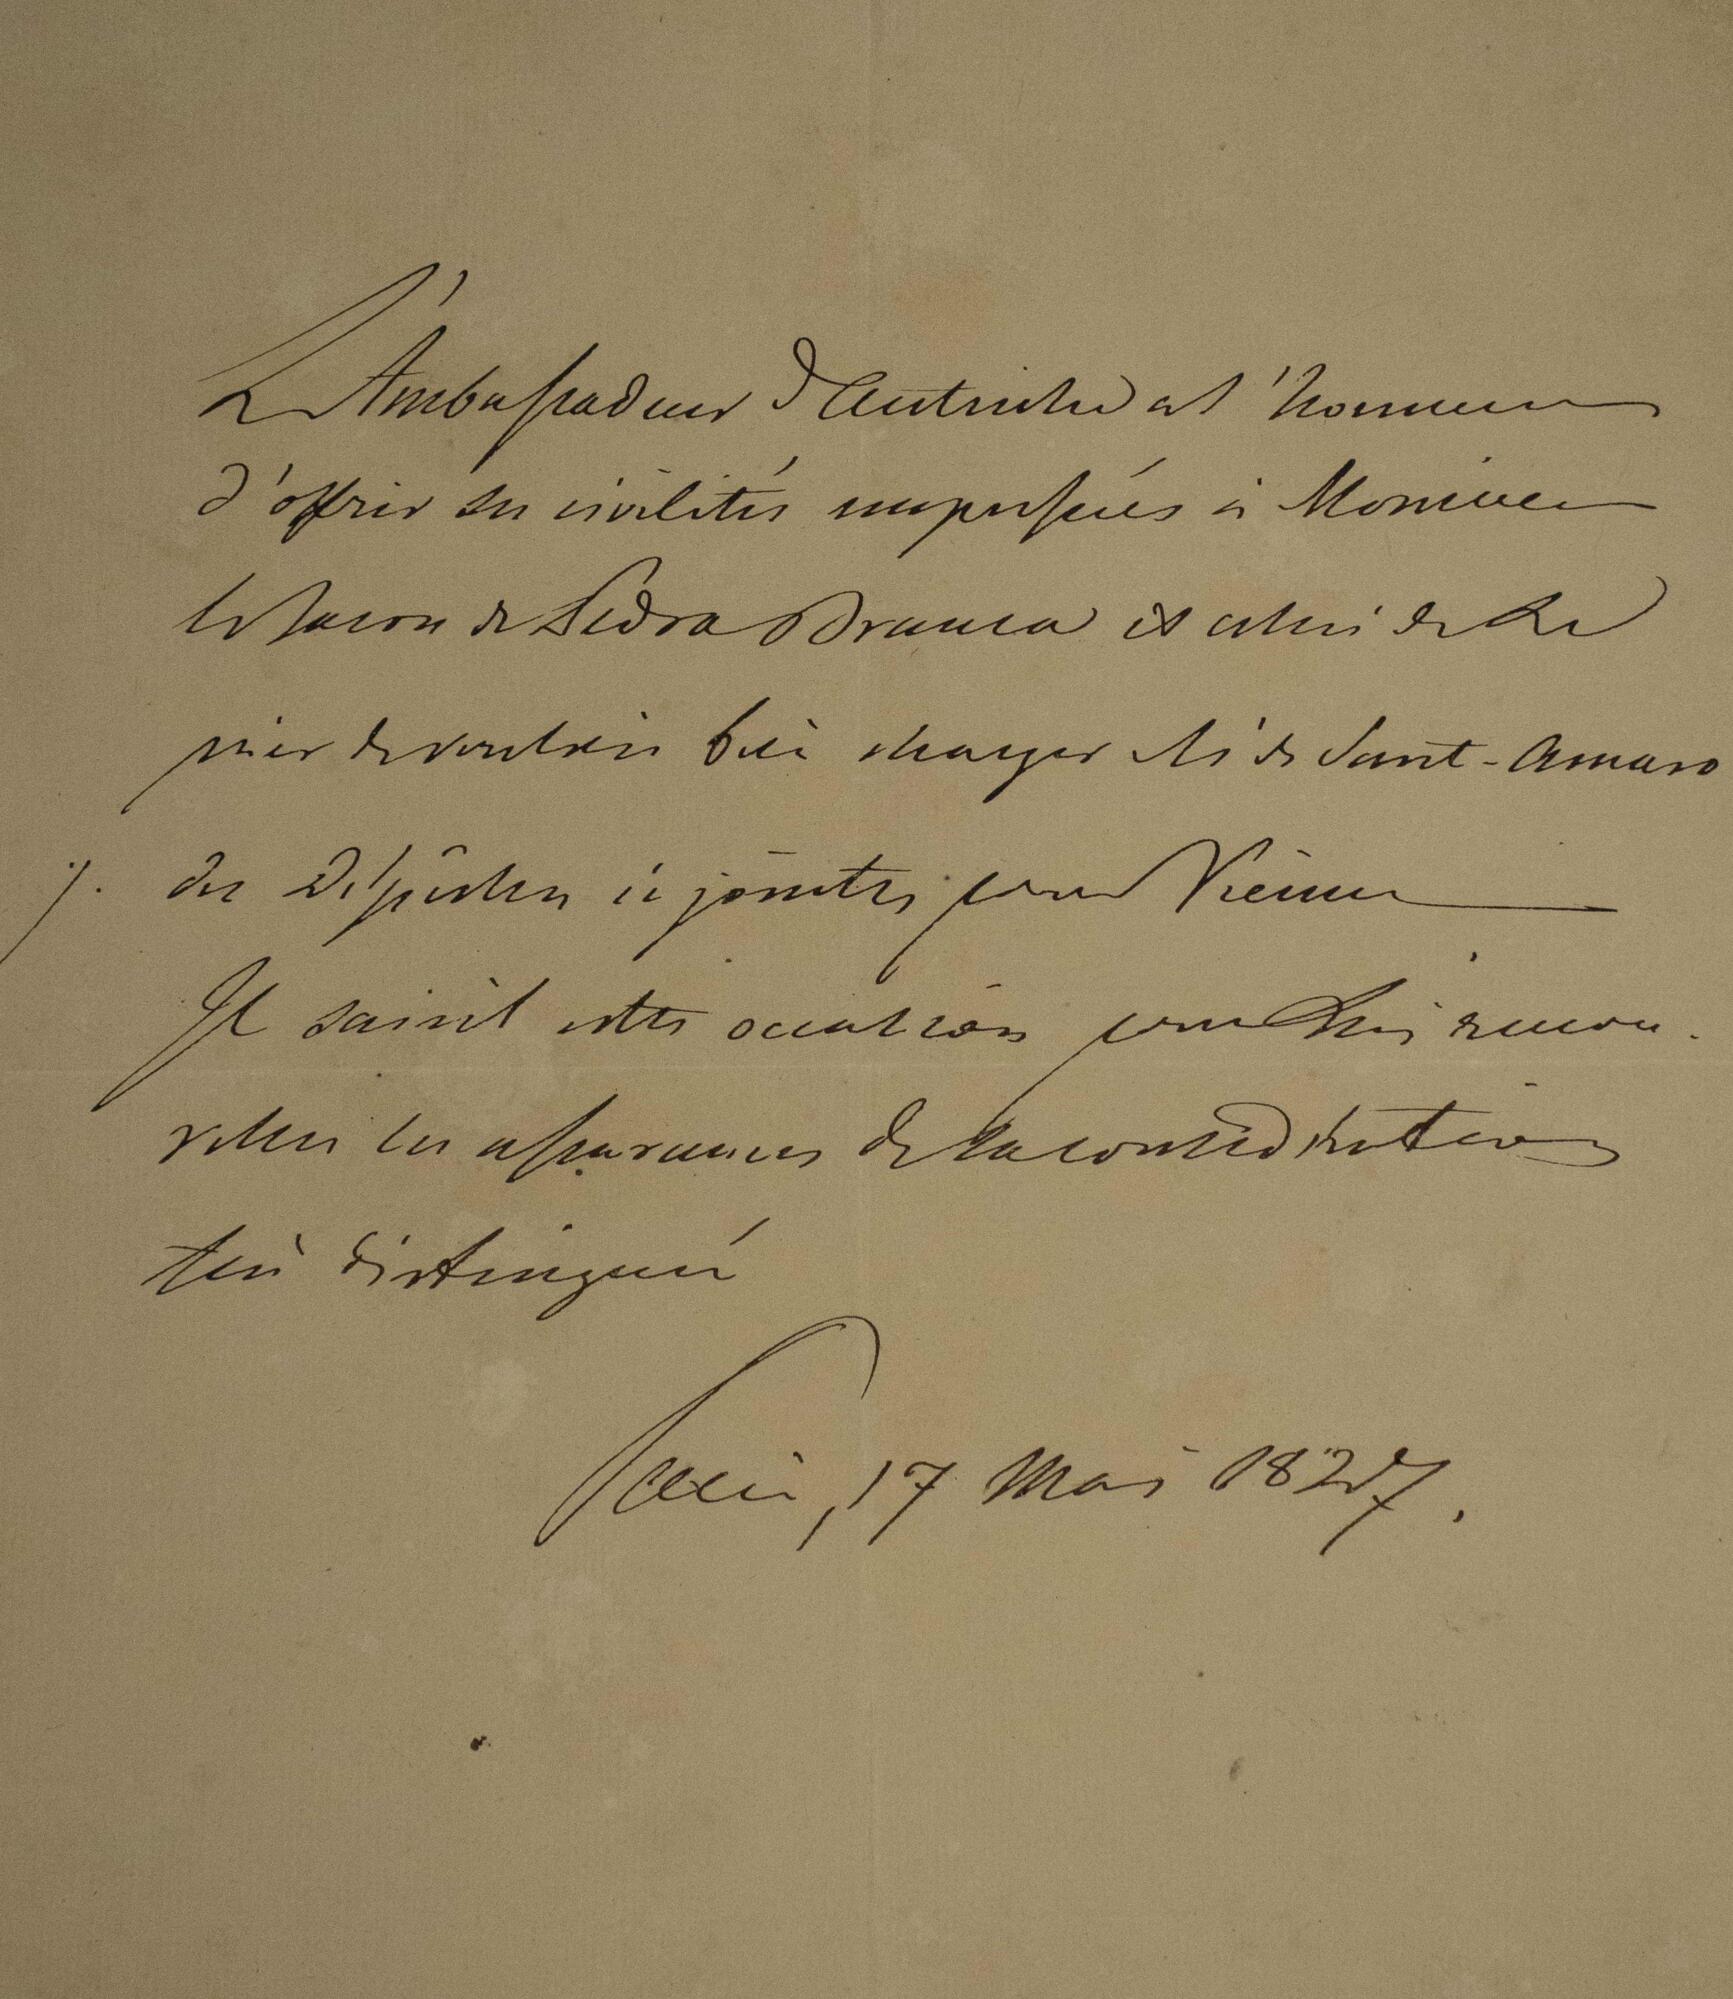 L'Ambassadeur d'Autriche a l'honneur
d'offrir ses civilités empressées à Monsieur
le Baron de Pedra Branca et celui de le
prier de vouloir bien charger M. de Sant-Amaro
des Dépêches ci jointes pour Vienne
Il saisit cette occasion pour lui renou-
veller les assurances de sa considération
très distinguée
Paris, 17 Mai 1827.